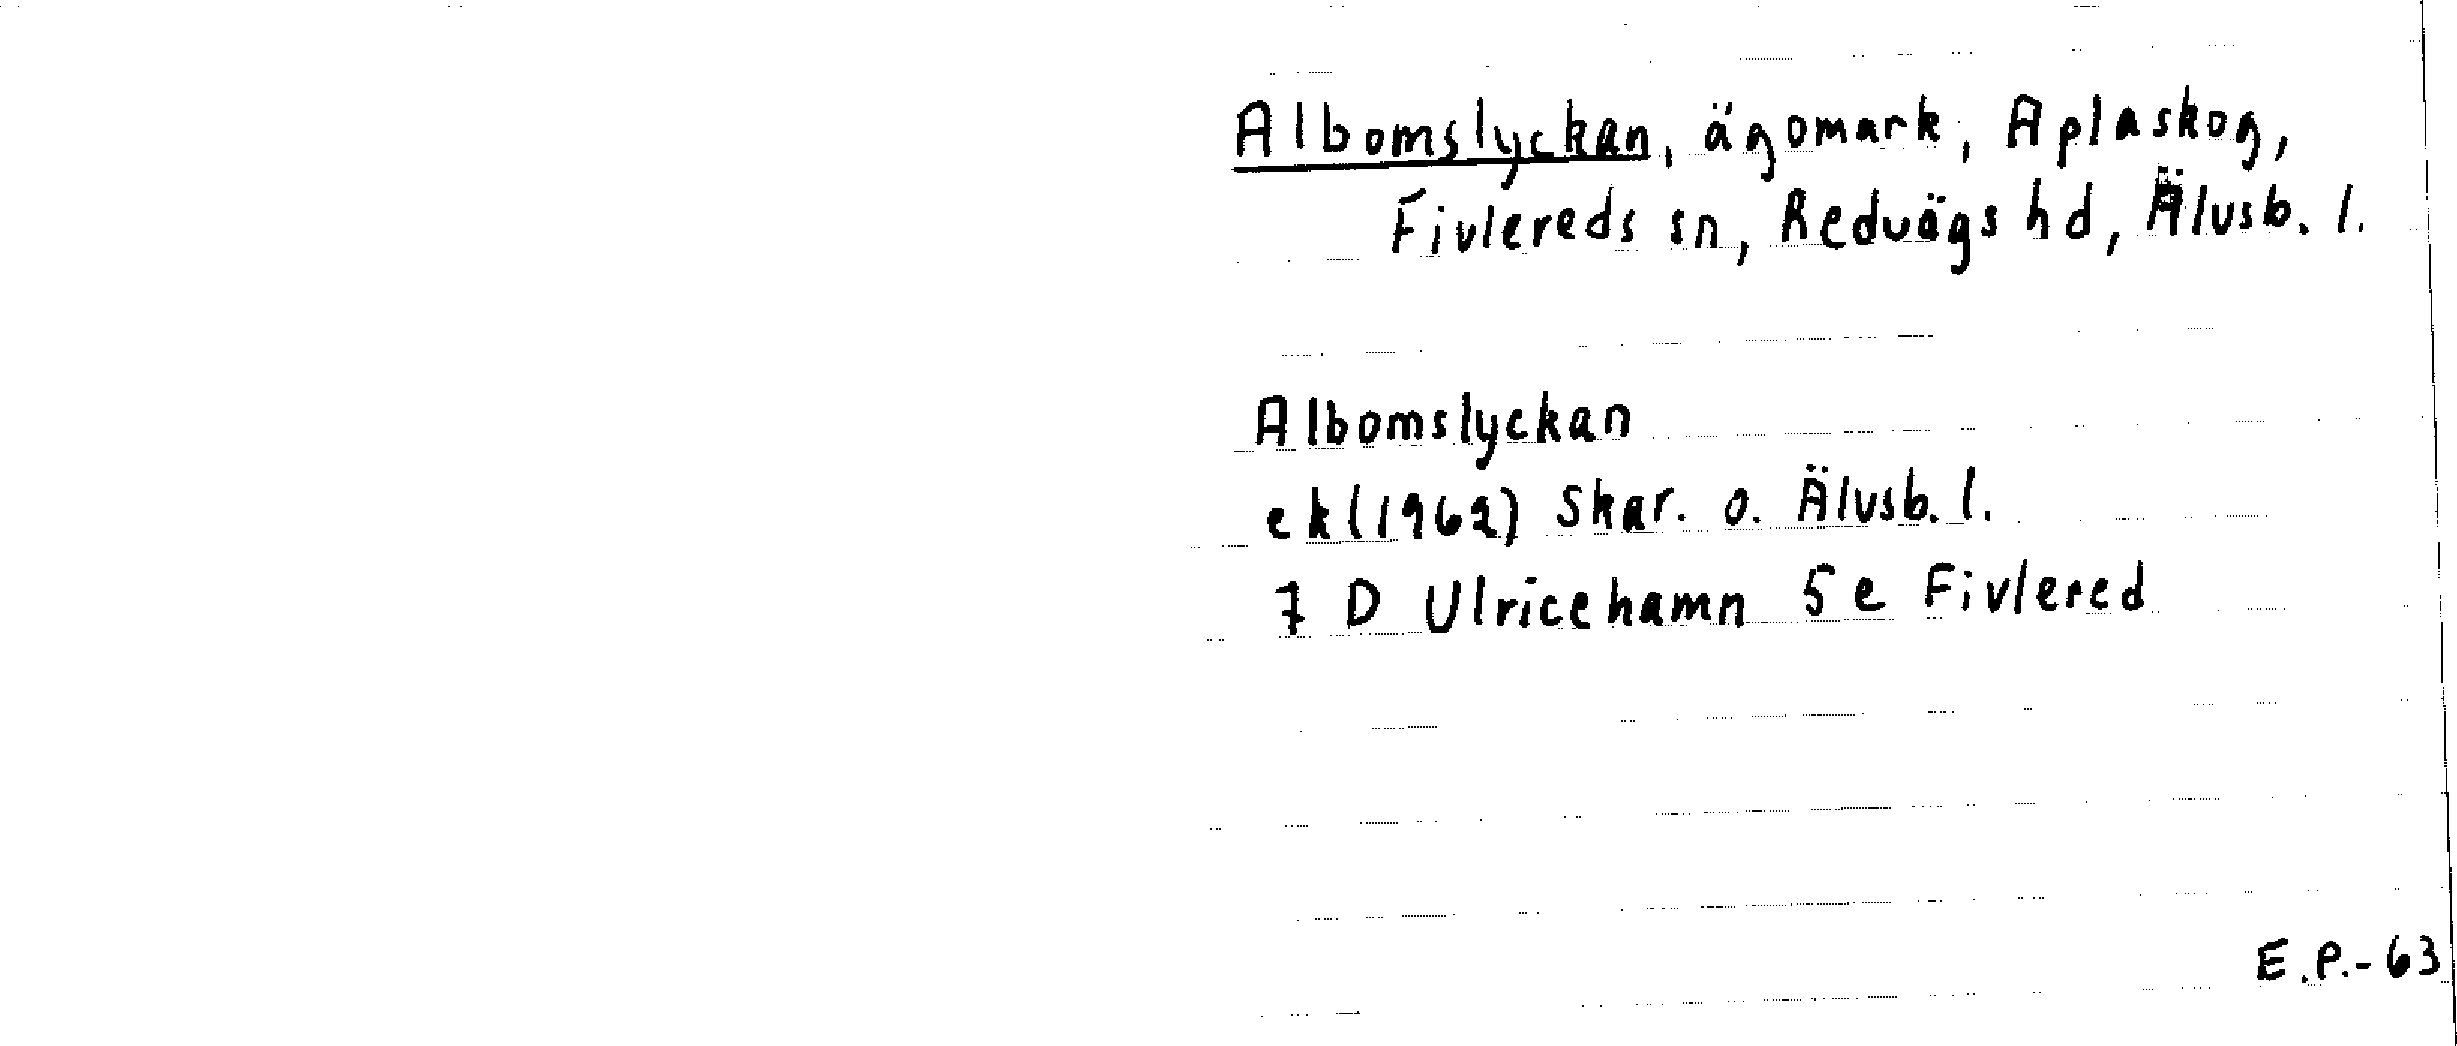 Albomslyckan, ägomark, Aplaskog,
Fivlereds sn, Redvägs hd, Älvsb. l.
Albomslyckan
ek (1962) Skar. o. Älvsb. l.
7 D Ulricehamn 5 e Fivlered
E.P.-63